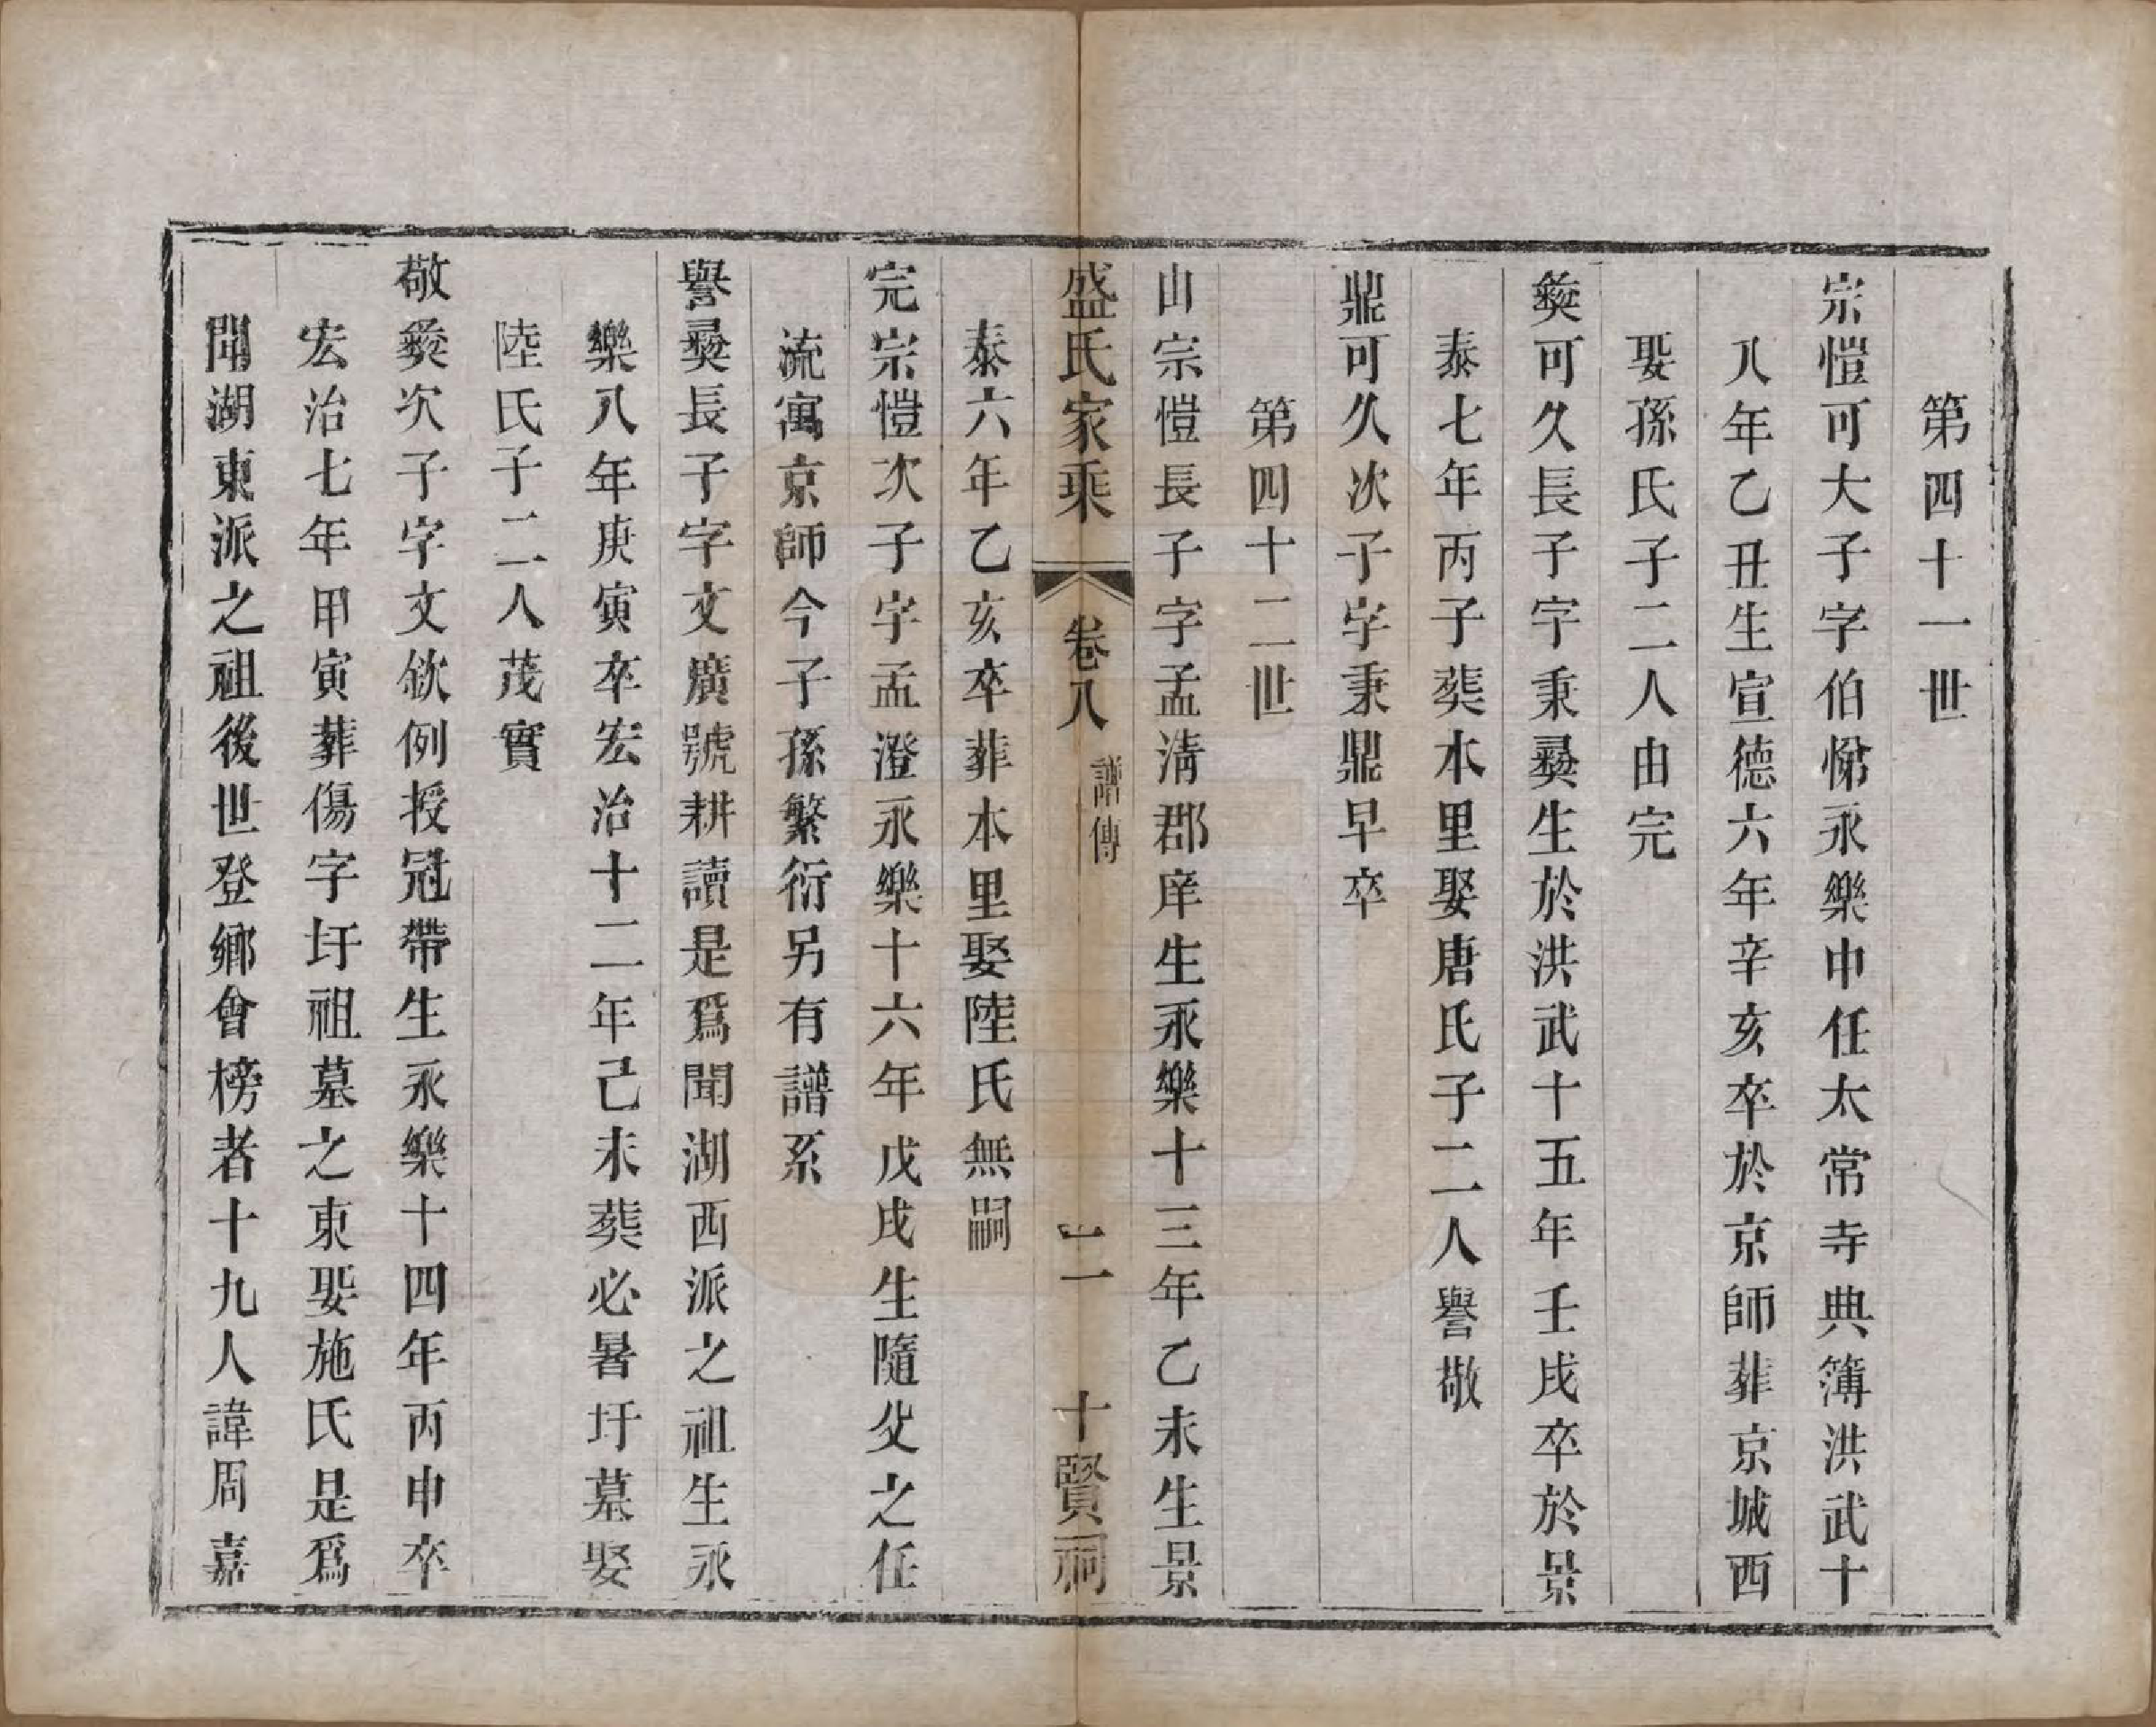 第四十一世
宗愷可大子字伯悌永樂中任太常寺典簿洪武十
八年乙丑生宣德六年辛亥卒於京師葬京城西
娶孫氏子二人由完
彝可久長子字秉彝生於洪武十五年壬戌卒於景
泰七年丙子葬本里娶唐氏子二人譽敬
鼎可久次子字秉鼎早卒
第四十二世
由宗愷長子字孟淸郡庠生永樂十三年乙未生景
盛氏家乘 卷八 譜傳 二 十賢祠
泰六年乙亥卒葬本里娶陸氏無嗣
完宗愷次子字孟澄永樂十六年戊戌生隨父之任
流寓京師今子孫繁衍另有譜系
譽彝長子字文廣號耕讀是爲聞湖西派之祖生永
樂八年庚寅卒宏治十二年己未葬必暑圩墓娶
陸氏子二人茂實
敬彝次子字文欽例授冠帶生永樂十四年丙申卒
宏治七年甲寅葬傷字圩祖墓之東娶施氏是爲
聞湖東派之祖後世登鄉會榜者十九人諱周嘉